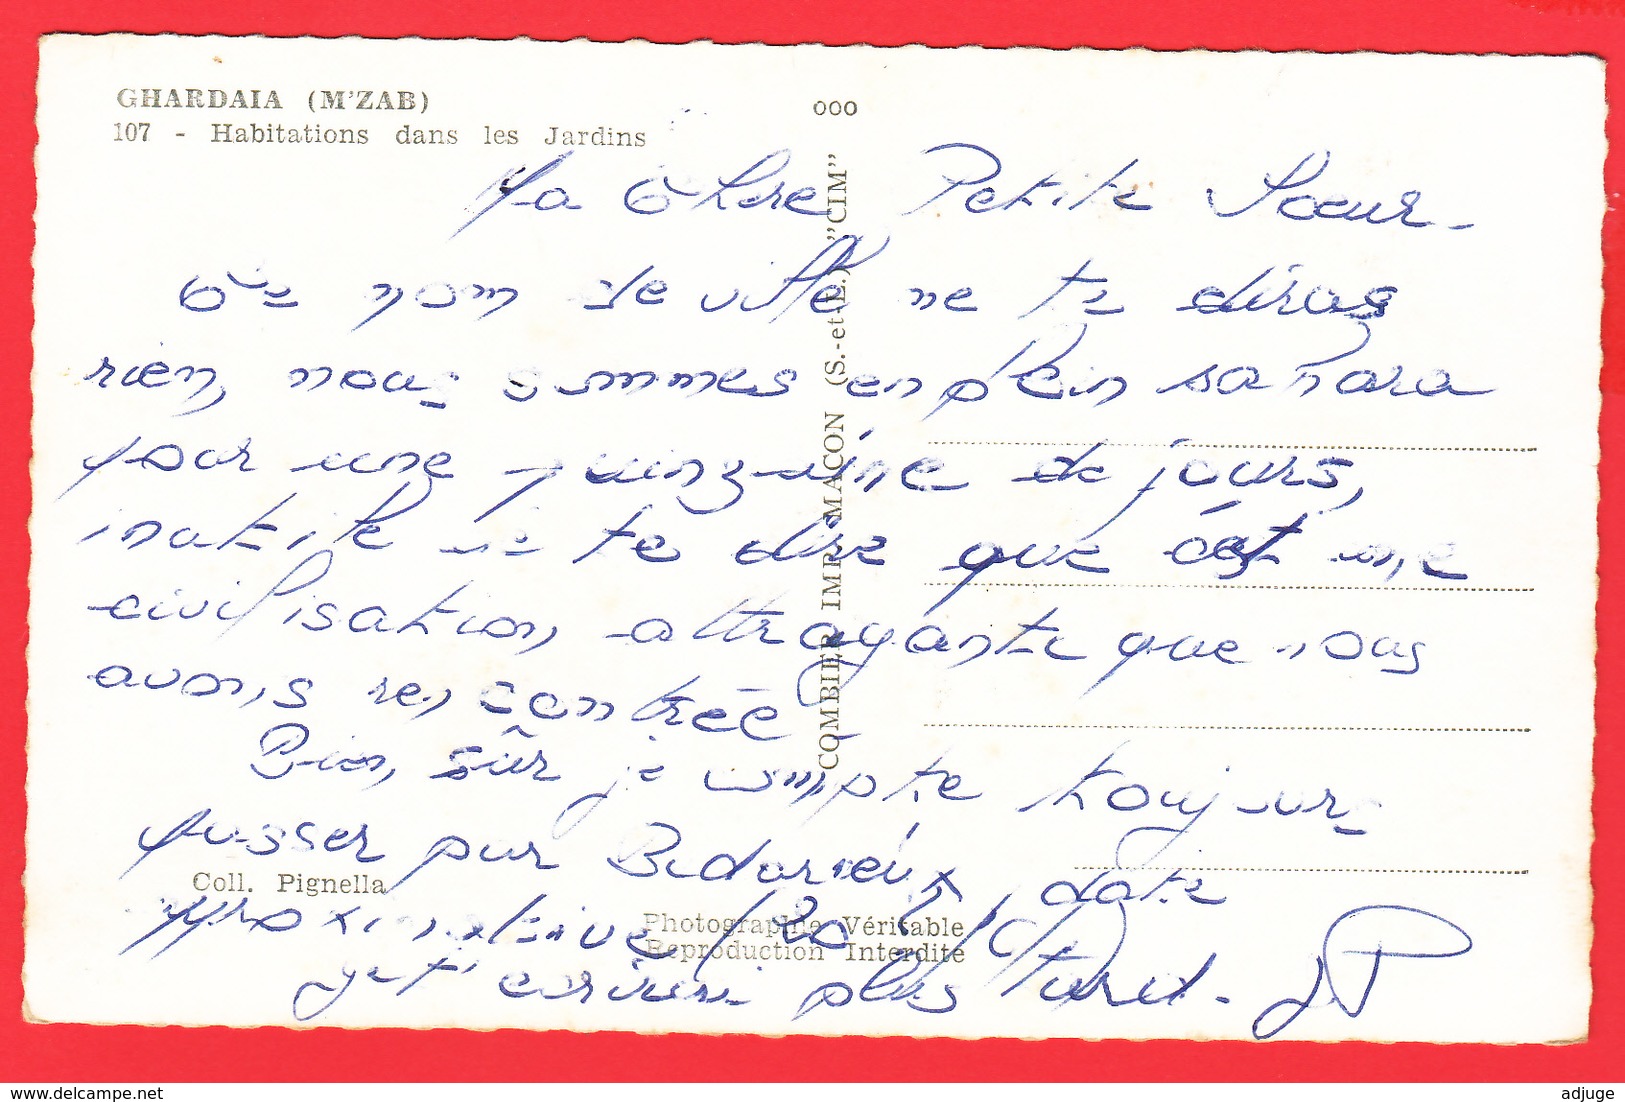 GHARDAIA (M'ZAB)
107 - Habitations dans les Jardins
ooo
Ma Chère Petite Sœur.
Ce nom de ville ne te diras
rien, nous sommes en plein sahara
pour une quinzaine de jours,
inutile de te dire que c'est une
civilisation attrayante que nous
avons rencontrée
Bien sûr je compte toujours
passer par Bedarieux, date
approximative 20
je t'écrirai plus tard. JP
COMBIER IMP. MACON (S.-et-L.) "CIM"
Coll. Pignella
Photographie Véritable
Reproduction Interdite
adjuge